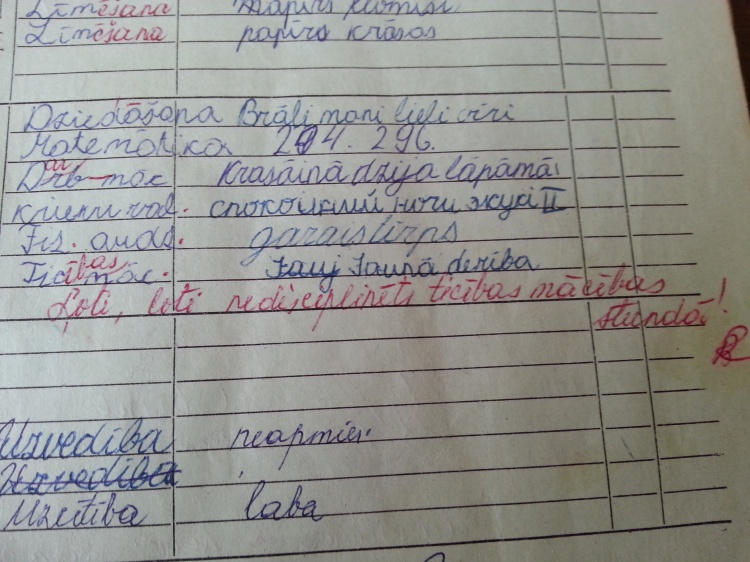 Zīmēšana papīrs
Zīmēšana papīrs krāsas
Dziedāšana Brāļi mani lieli vīri
Matemātika 294. 296.
Darb māc Krasāinā dzija lāpāmā
krievu val. спокойний ночи II
Fiz. aud. garais lirps
Ticības māc. Jauj Jaunā deriba
Ļoti, ļoti nedisciplinēti ticības mācības
stundā!
Uzvedība neapmier.
Uzvedība
Uzcītība laba